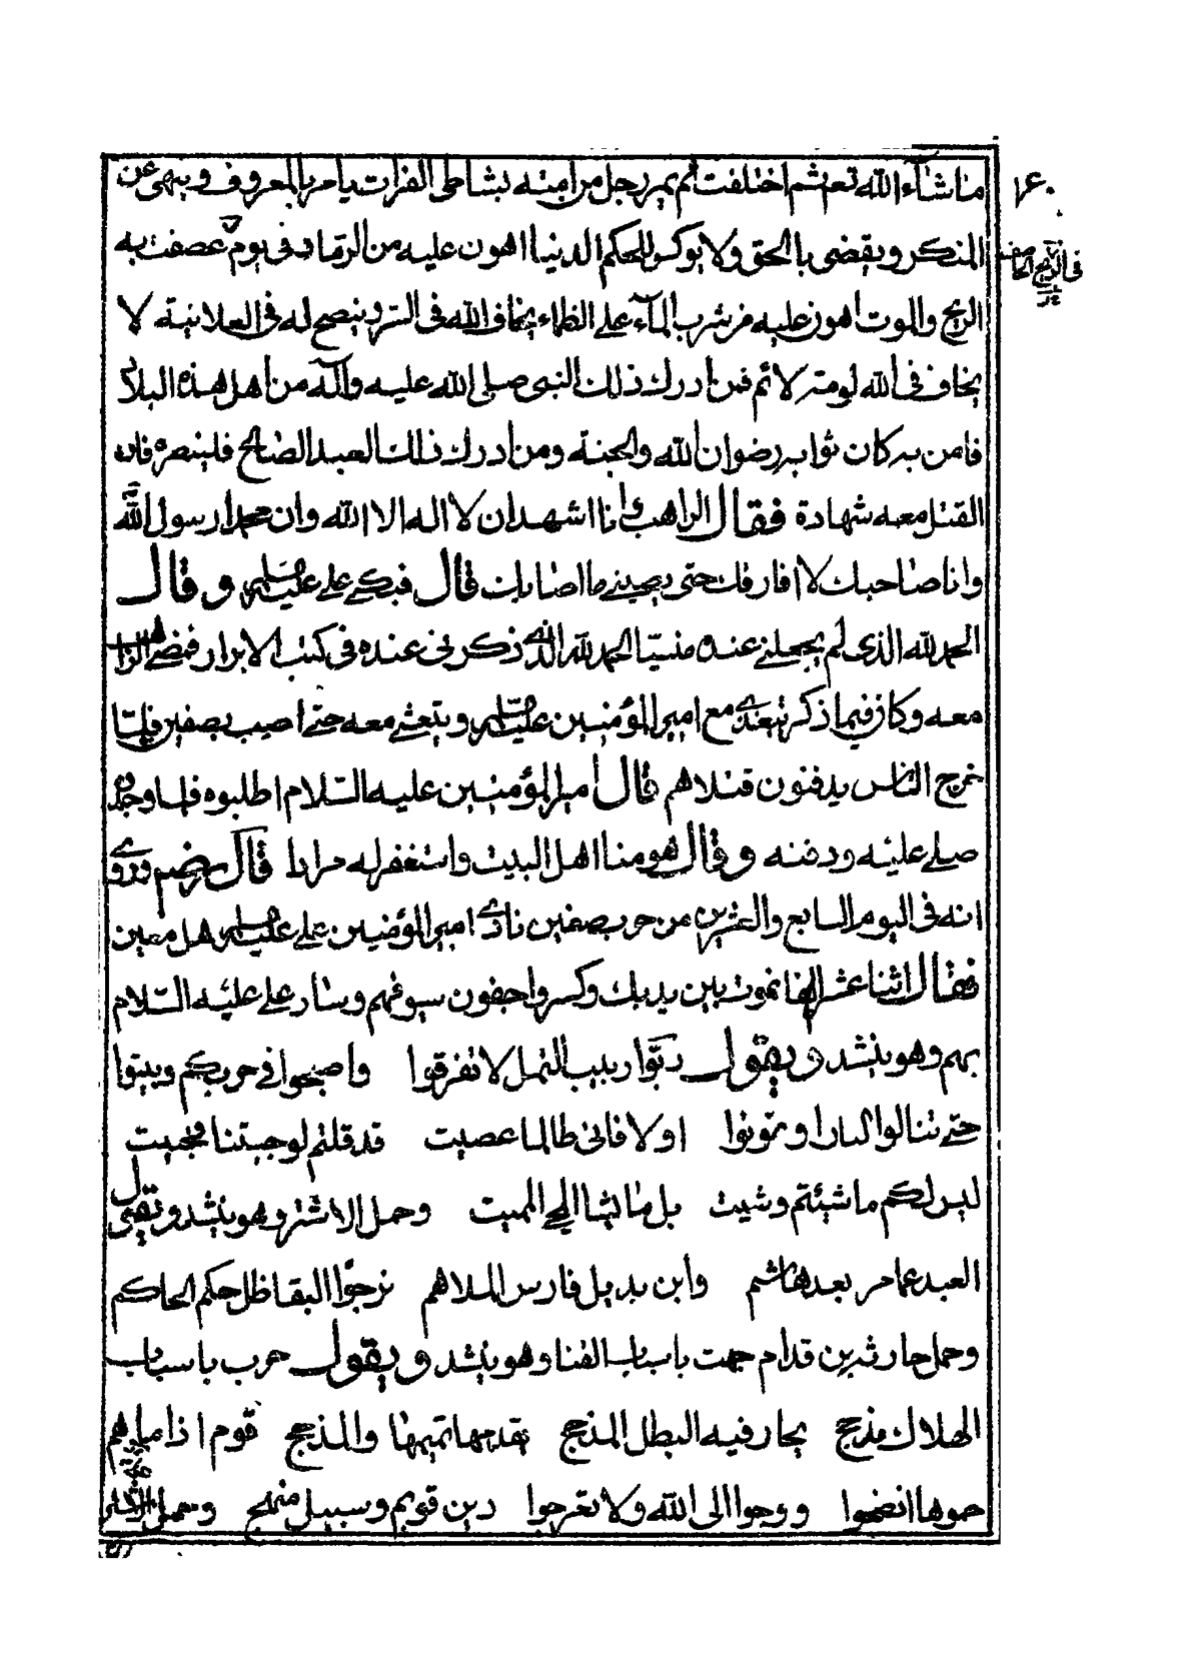 ما شآء الله تعم ثم اختلفت ثم يمر رجل من امته بشاطى الفرات يامر بالمعروف وينهى عن
المنكر ويقضى بالحق ولا يوكس الحكم الدنيا اهون عليه من الرماد فى يوم عصفت به
الريح والموت اهون عليه من شرب المآء على الظماء يخاف الله فى السر وينصح له فى العلانية لا
يخاف فى الله لومة لائم فمن ادرك ذلك النبى صلى الله عليه وآله من اهل هذه البلاد
فامن به كان ثوابه رضوان الله والجنة ومن ادرك ذلك العبد الصالح فلينصره فان
القتل معه شهادة فقال الراهب وانا اشهد ان لا اله الا الله وان محمدا رسول الله
وانا صاحبك لا افارقك حتى يصيبنى ما اصابك قال فبكى على عليه السلم وقال
الحمد لله الذى لم يجعلنى عنده منسيا الحمد لله الذى ذكرنى عنده فى كتب الابرار فمضى الراهب
معه وكان فيما ذكر يتغدى مع امير المؤمنين عليه السلم ويتعشى معه حتى اصيب بصفين فلما
خرج الناس يدفنون قتلاهم قال امير المؤمنين عليه السلام اطلبوه فلما وجدوه
صلى عليه ودفنه وقال هو منا اهل البيت واستغفر له مرارا قال وروى
انه فى اليوم السابع والعشرين من حرب صفين نادى امير المؤمنين على عليه السلم هل من معين
فقال اثنا عشر الفا نموت بين يديك وكسروا جفون سيوفهم وسار على عليه السلام
بهم وهو ينشد ويقول دبوا دبيب النمل لا تفرقوا واصبحوا فى حربكم وبيتوا
حتى تنالوا الثارا وتموتوا او لا فانى طالما عصيت قد قلتم لو جبتنا فجيت
ليس لكم ما شئتم وشيت بل ما يشا المحيى المميت وحمل الاشتر وهو ينشد ويقول
العبد عامر بعد هاشم وابن بديل فارس الملاهم نرجوا البقا ظل حكم الحاكم
وحمل حارثة بن قدام باسباب الفنا وهو ينشد ويقول حرب باسباب
الهلاك مذجج يحار فيه البطل المذجج تميمها والمذجج قوم اذا ما
حموها انضجوا ووجوا الى الله ولا تعرجوا دين قويم وسبيل منهج وحمل
١٦٠
فى الريح